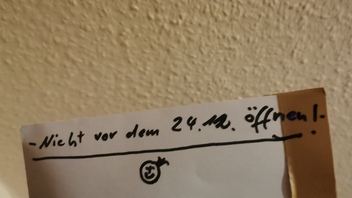 - Nicht vor dem 24.12. öffnen! -